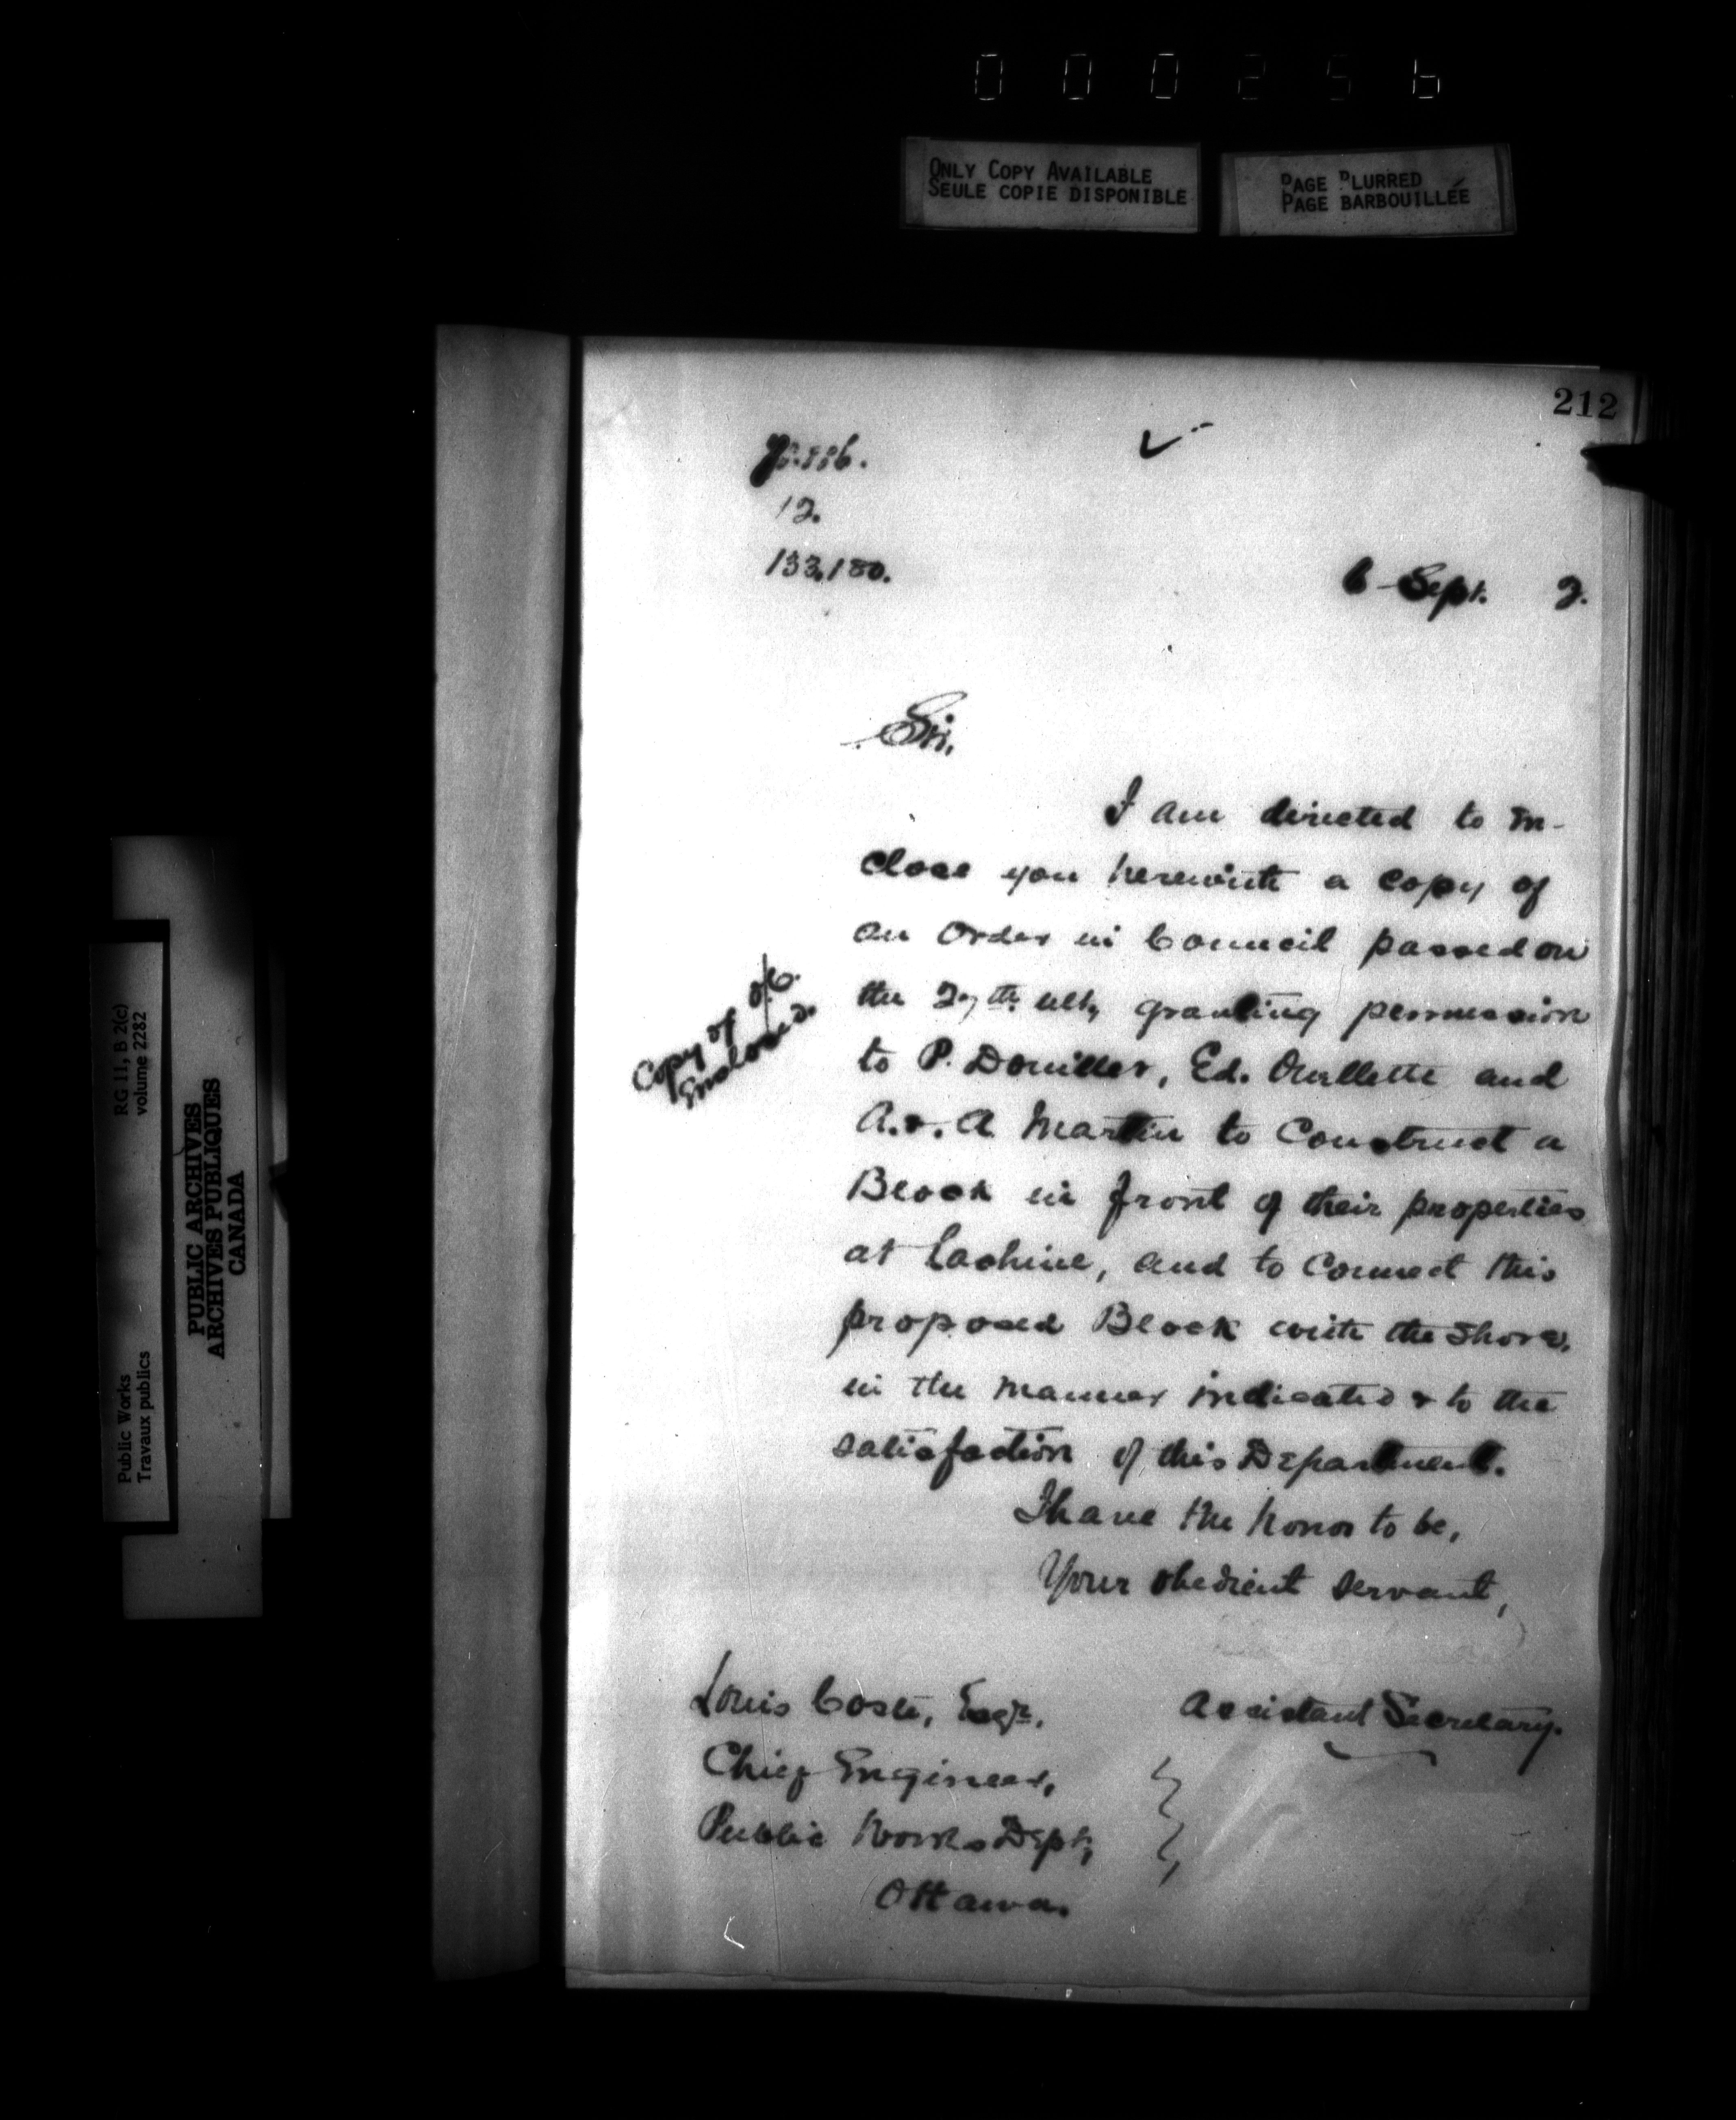 000256
ONLY COPY AVAILABLE
SEULE COPIE DISPONIBLE
PAGE BLURRED
PAGE BARBOUILLÉE
212
12.
133,180.
6 Sept. 2.
Sir,
I am directed to in-
close you herewith a copy of
an Order in Council passed on
the 27th ult, granting permission
to P. Douiller, Ed. Ouellette and
A. & A Martin to Construct a
Block in front of their properties
at Lachine, and to Connect this
proposed Block with the Shore,
in the manner indicated & to the
satisfaction of this Department.
I have the honor to be,
Your obedient servant,
Copy of O/C.
Enclosed.
Assistant Secretary.
Louis Coste, Esqr.
Chief Engineer,
Public Works Dept,
Ottawa.
RG 11, B 2(c)
volume 2282
Public Works
Travaux publics
PUBLIC ARCHIVES
ARCHIVES PUBLIQUES
CANADA